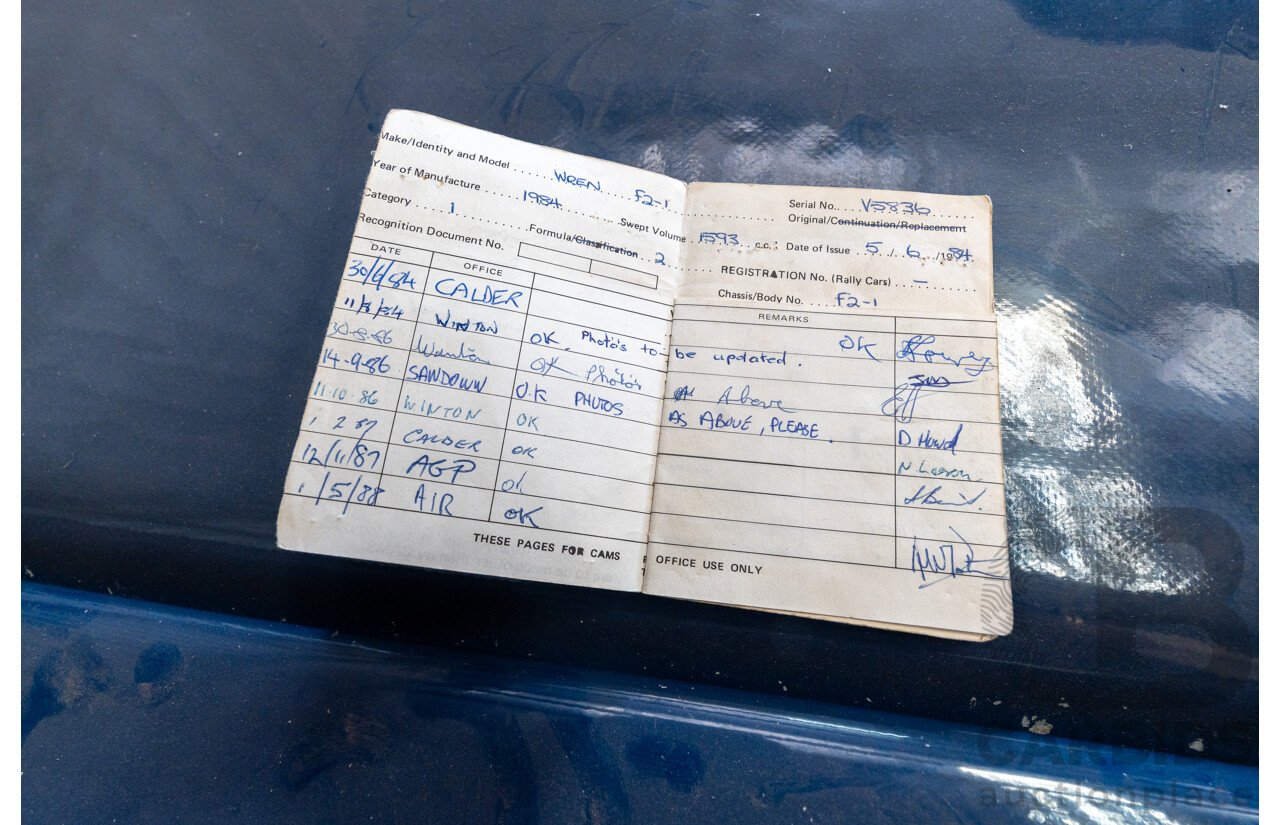 Make/Identity and Model ..... WREN F2-1 Serial No... V5836
Year of Manufacture ...... 1984 Original/Continuation/Replacement
Category .... 1 ......... Formula/Classification .. 2 Swept Volume .1593.. c.c. Date of Issue 5 / 6 /1984
Recognition Document No. REGISTRATION No. (Rally Cars) .. —
Chassis/Body No. ... F2-1
DATE OFFICE REMARKS
30/6/84 CALDER OK
11/8/84 WINTON OK. Photo's to be updated.
30-8-86 OK Photo's As Above
14-9-86 SANDOWN O.K PHOTOS AS ABOVE, PLEASE. D Howd
11-10-86 WINTON OK
1 2 87 CALDER OK
12/11/87 AGP OK
1/5/88 AIR OK
THESE PAGES FOR CAMS OFFICE USE ONLY
CARBIDS
auctionplace